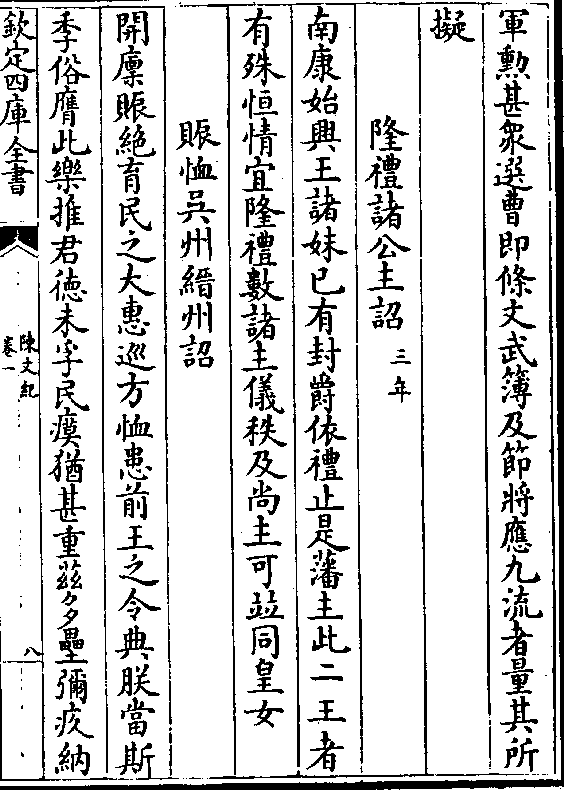 軍勲甚衆選曹即條文武簿及節將應九流者量其所
擬
隆禮諸公主詔 三年
南康始興王諸妹已有封爵依禮止是藩主此二王者
有殊恒情宜隆禮數諸主儀秩及尚主可竝同皇女
賑恤吳州縉州詔
開廩賑絶育民之大惠巡方恤患前王之令典朕當斯
季俗膺此樂推君徳未孚民瘼猶甚重茲多壘彌疚納
欽定四庫全書
陳文紀
卷一
八